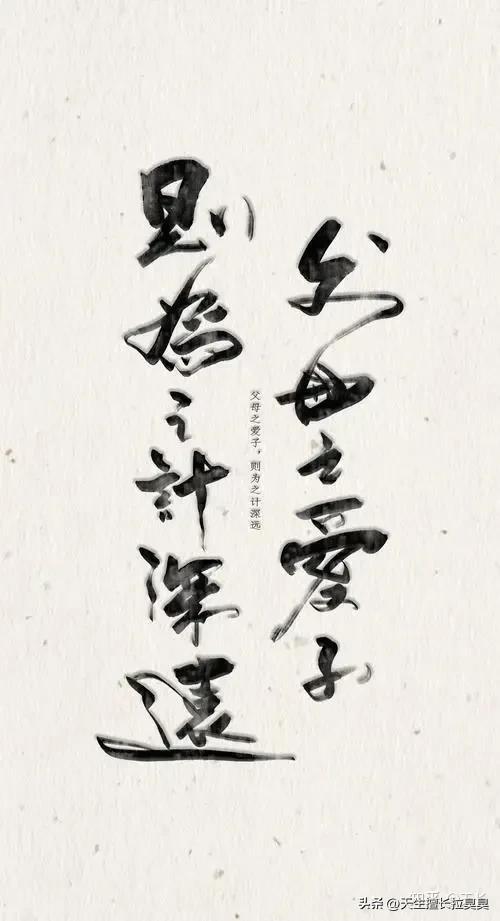 父母之愛子
則為之計深遠
父母之爱子，则为之计深远
头条 @天生擅长拉臭臭